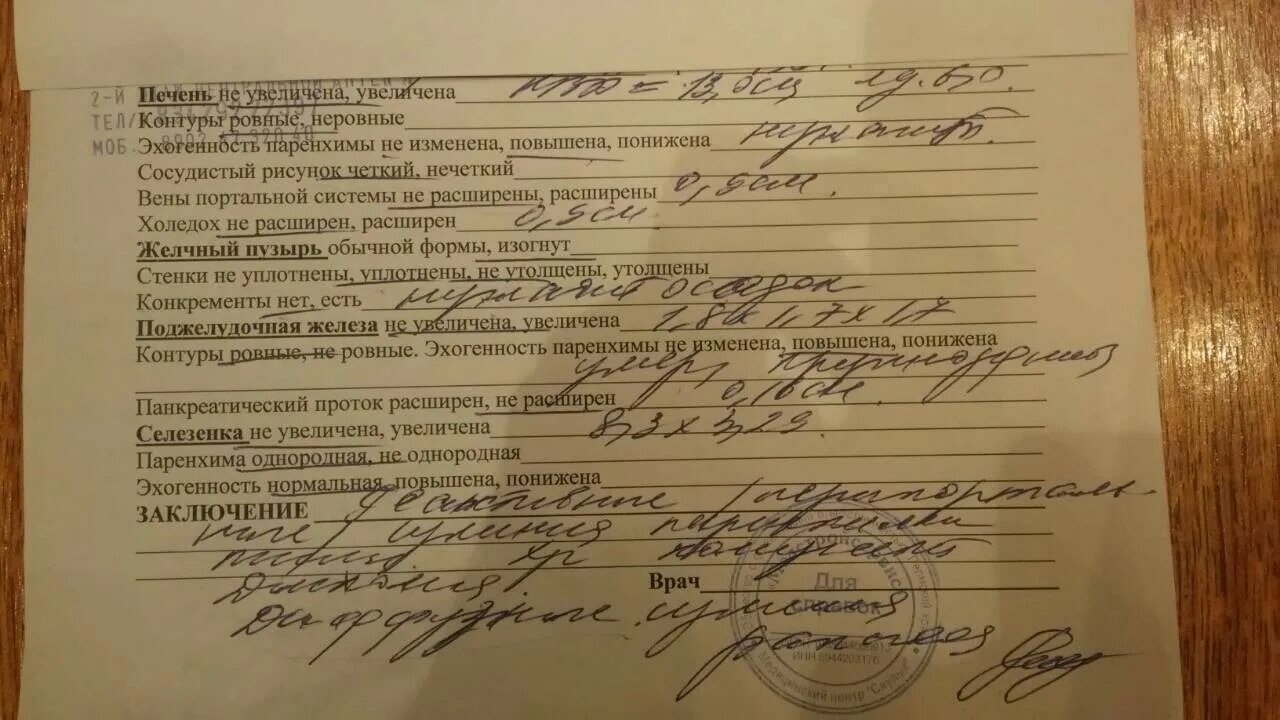 2-Й
ТЕЛ/
МОБ. 8902
Печень не увеличена, увеличена = 13,6см
Контуры ровные, неровные
Эхогенность паренхимы не изменена, повышена, понижена
Сосудистый рисунок четкий, нечеткий
Вены портальной системы не расширены, расширены 0,9см.
Холедох не расширен, расширен 0,5см
Желчный пузырь обычной формы, изогнут
Стенки не уплотнены, уплотнены, не утолщены, утолщены
Конкременты нет, есть осадок
Поджелудочная железа не увеличена, увеличена 1,8х1,7х1,7
Контуры ровные, не ровные. Эхогенность паренхимы не изменена, повышена, понижена
умер,
Панкреатический проток расширен, не расширен 0,16см.
Селезенка не увеличена, увеличена 8,3х3,29.
Паренхима однородная, не однородная
Эхогенность нормальная, повышена, понижена
ЗАКЛЮЧЕНИЕ Реактивные перипорталь-
ные паренхимы
печени. Хр холецистит
Врач
Диффузные
Для
справок
ИНН 5944203176
Медицинский центр